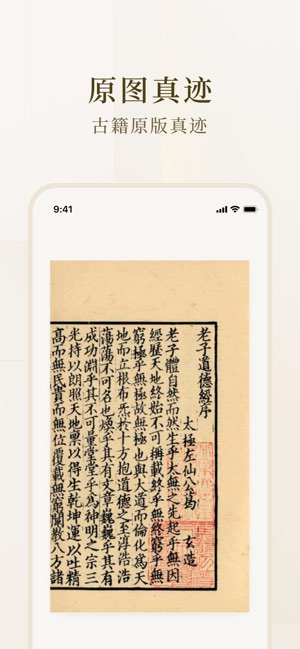 原图真迹
古籍原版真迹
9:41
老子道德經序
太極左仙公葛 玄造
老子體自然而然生乎太無之先起乎無因
經歷天地終始不可稱載終乎無終窮乎無
窮極乎無極故無極也與大道而倫化爲天
地而立根布炁於十方抱道德之至淳浩浩
蕩蕩不可名也煥乎其有文章巍巍乎其有
成功淵乎其不可量堂堂乎爲神明之宗三
光持以朗照天地稟以得生乾坤運以吐精
高而無民貴而無位覆載無窮闡教八方諸